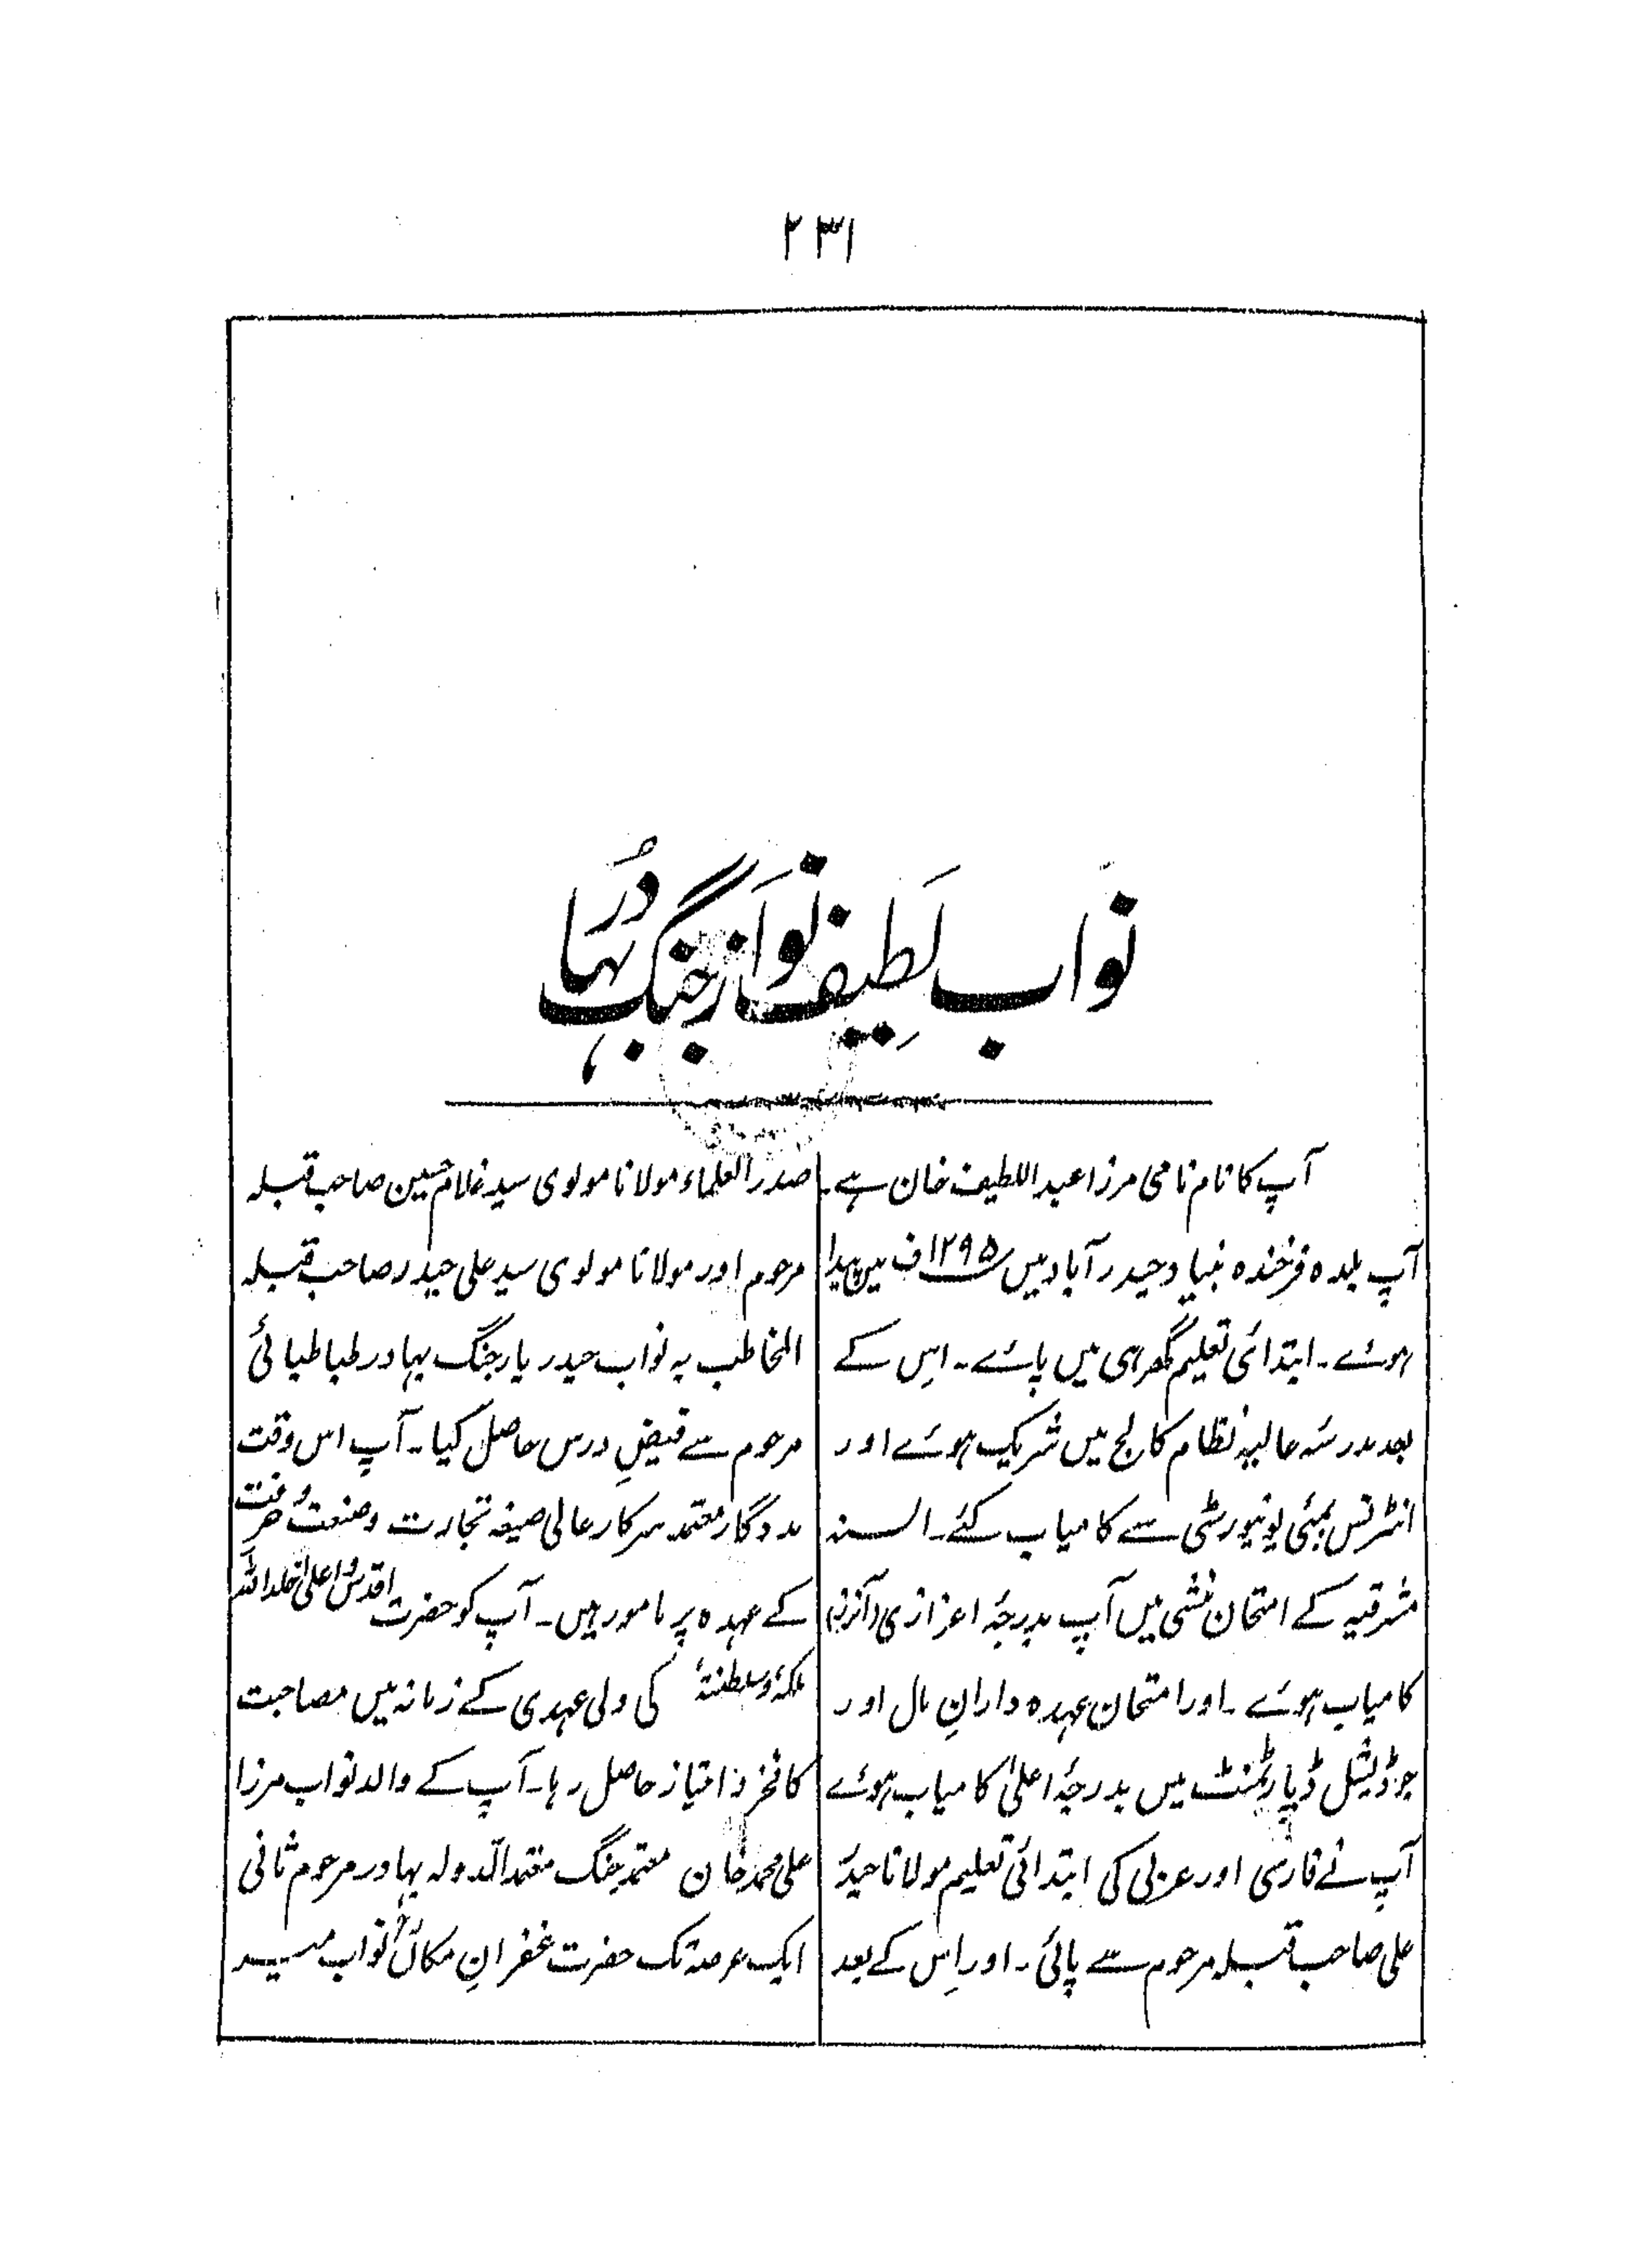 ۲۳۱
نواب لَطِیف نَواز جنگ بہادُر
آپ کا نام نامی مرزا عبد اللطیف خان ہے۔
آپ بلدہ فرخندہ بنیاد حیدرآباد میں ۱۲۹۵ف میں پیدا
ہوئے۔ ابتدائی تعلیم گھر ہی میں پائے۔ اِس کے
بعد مدرسۂ عالیہ نظام کالج میں شریک ہوئے اور
انٹرنس بمبئی یونیورسٹی سے کامیاب کئے۔ السنہ
مشرقیہ کے امتحان منشی میں آپ بدرجۂ اعزازی (آنرز)
کامیاب ہوئے۔ اور امتحان عہدہ دارانِ مال اور
جوڈیشل ڈپارٹمنٹ میں بدرجۂ اعلیٰ کامیاب ہوئے
آپ نے فارسی اور عربی کی ابتدائی تعلیم مولانا حیدر
علی صاحب قبلہ مرحوم سے پائی۔ اور اِس کے بعد
صدر العلماء مولانا مولوی سید غلام حسین صاحب قبلہ
مرحوم اور مولانا مولوی سید علی حیدر صاحب قبلہ
المخاطب بہ نواب حیدر یار جنگ بہادر طباطبائی
مرحوم سے فیضِ درس حاصل کیا۔ آپ اس وقت
مددگار معتمد سرکار عالی صیغہ تجارت و صنعت و حرفت
کے عہدہ پر مامور ہیں۔ آپ کو حضرت اقدس و اعلیٰ خلد اللہ
ملکہٗ و سلطنتہٗ کی ولی عہدی کے زمانہ میں مصاحبت
کا فخر و امتیاز حاصل رہا۔ آپ کے والد نواب مرزا
علی محمد خان معتمد جنگ معتمد الدّولہ بہادر مرحوم ثانی
ایک عرصہ تک حضرت غفرانِ مکانؒ نواب میر